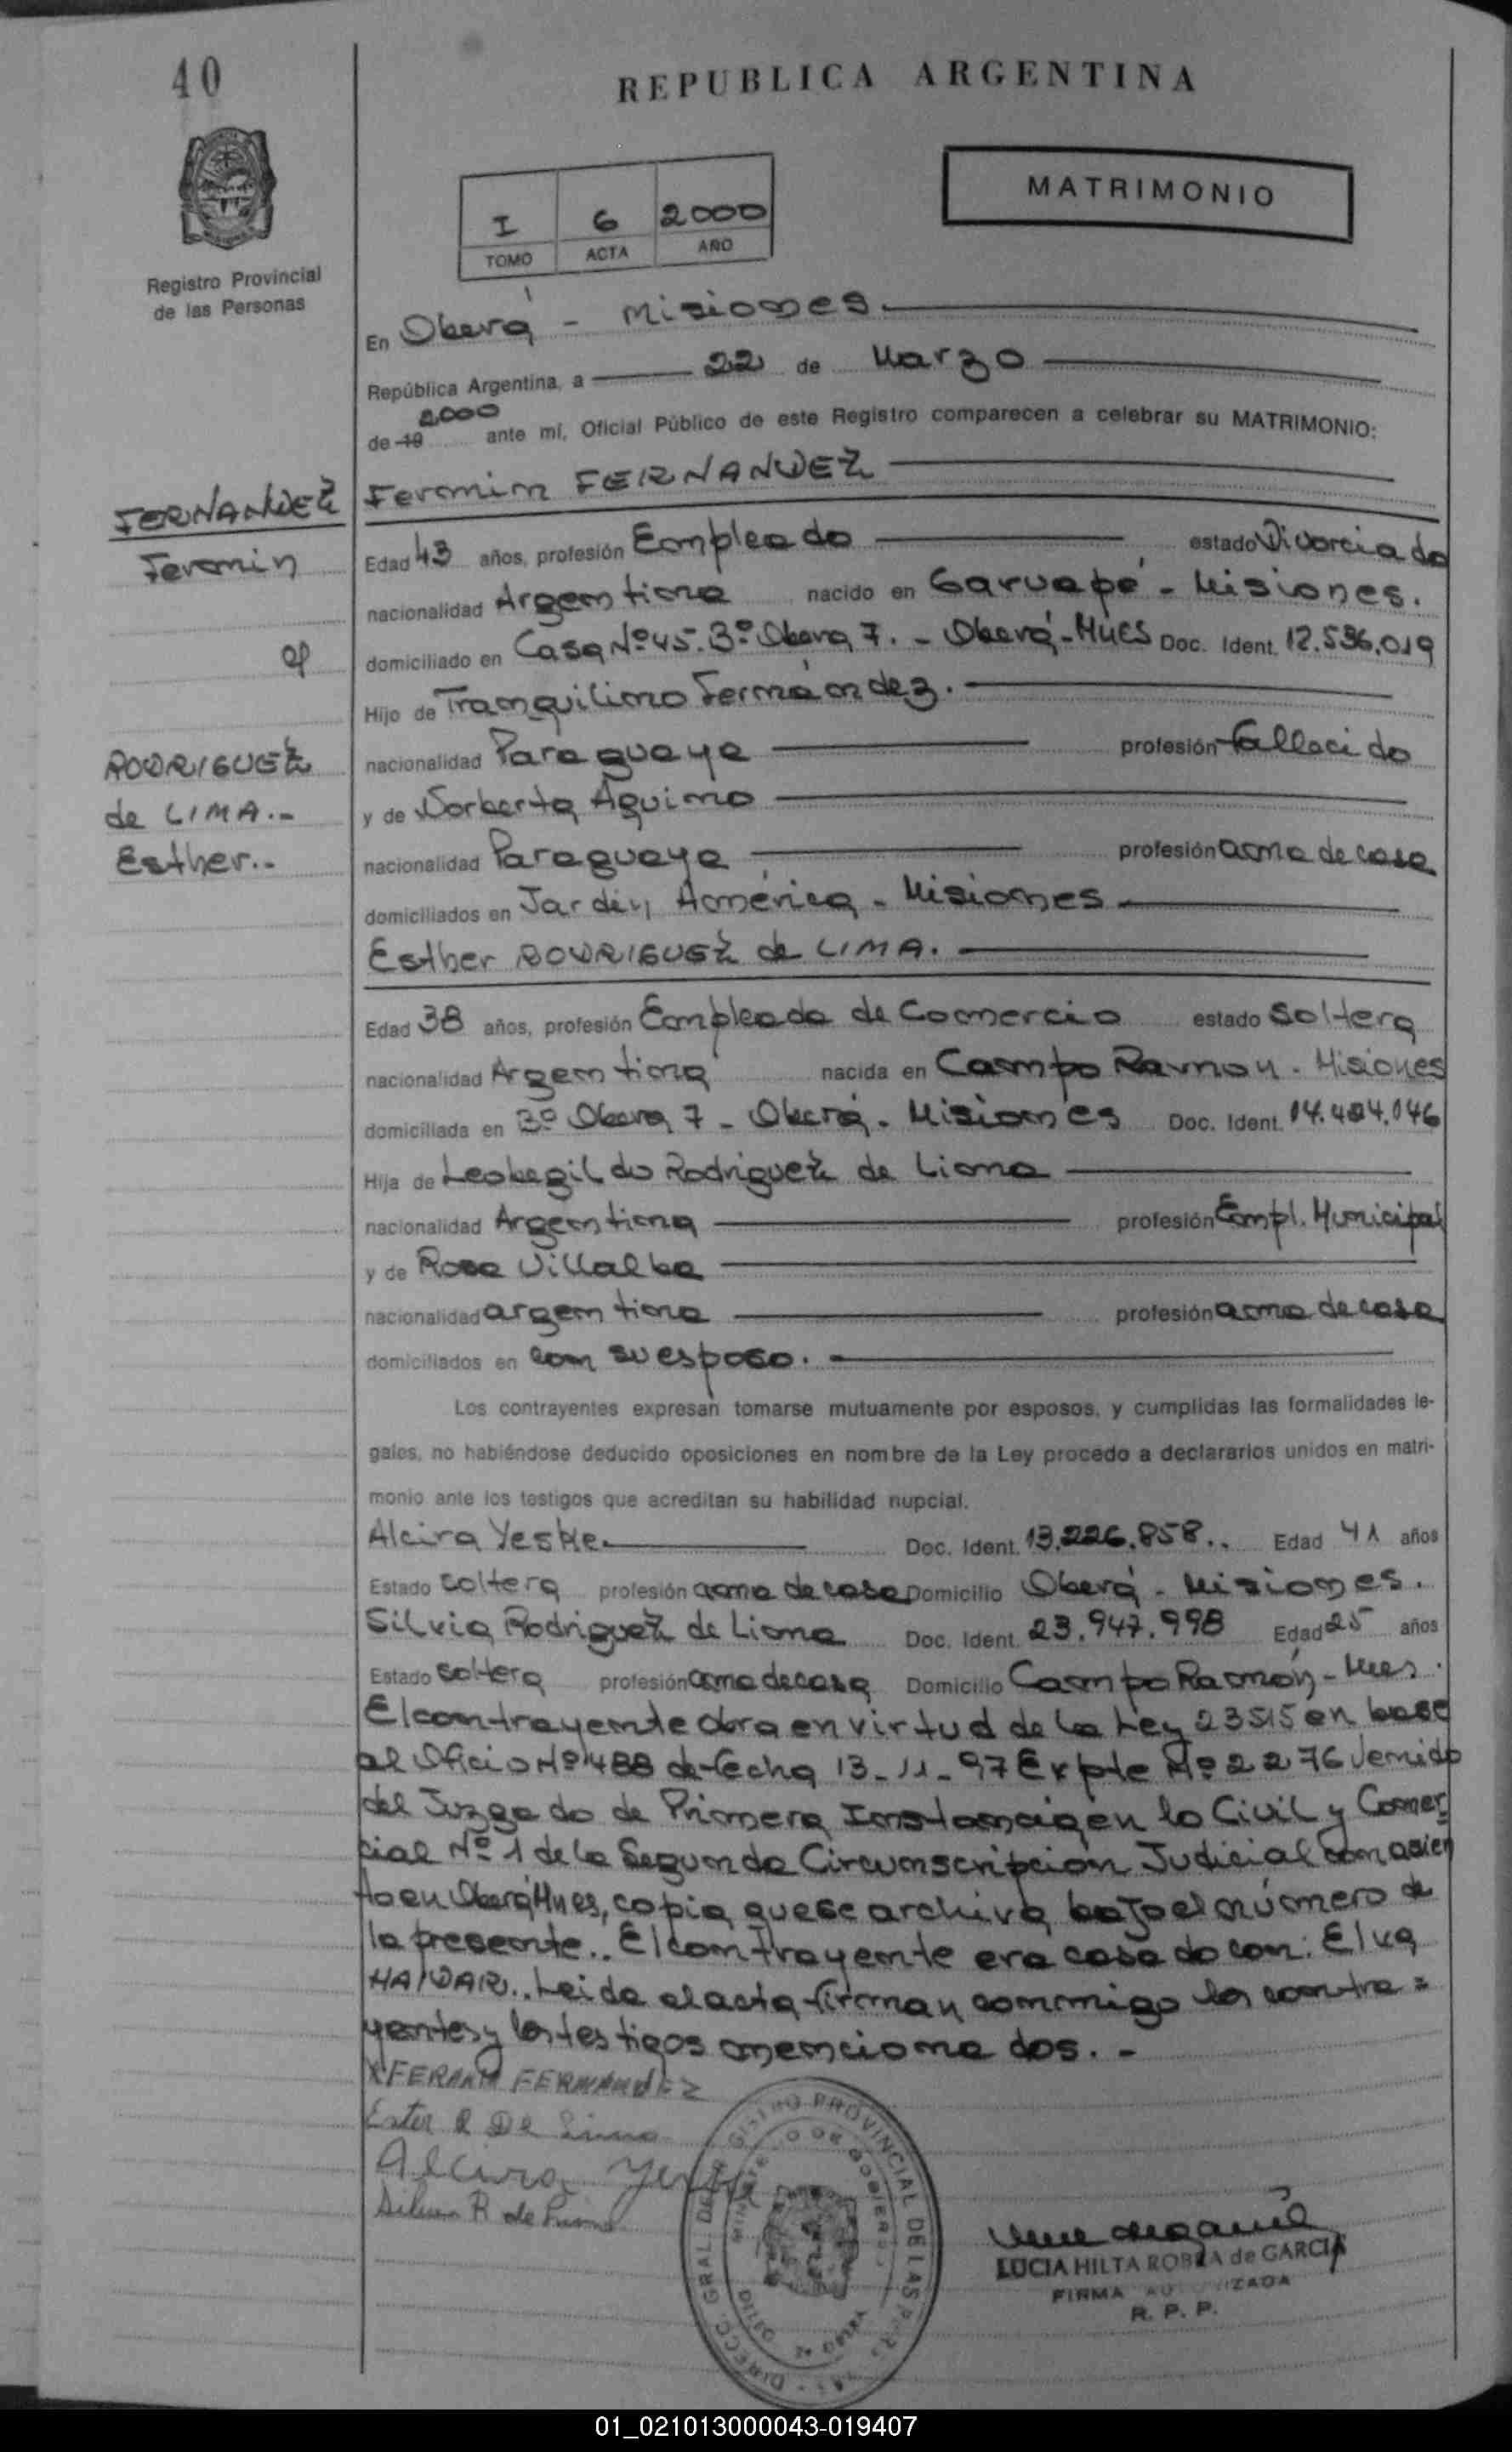 40
REPUBLICA ARGENTINA
MATRIMONIO
I 6 2000
TOMO ACTA AÑO
Registro Provincial
de las Personas
En Oberá - Misiones
República Argentina, a 22 de Marzo
2000
de 19 ante mí, Oficial Público de este Registro comparecen a celebrar su MATRIMONIO:
FERNANDEZ
Fermin
c/
RODRIGUEZ
de LIMA.-
Esther.-
Fermin FERNANDEZ
Edad 43 años, profesión Empleado estado Divorciado
nacionalidad Argentina nacido en Garuapé - Misiones.
domiciliado en Casa Nº 45. Bº Obera 7. - Oberá - Mnes Doc. Ident. 12.536.019
Hijo de Tranquilino Fernández.
nacionalidad Paraguaya profesión Fallecido
y de Norberta Aquino
nacionalidad Paraguaya profesión ama de casa
domiciliados en Jardín América - Misiones
Esther RODRIGUEZ de LIMA.
Edad 38 años, profesión Empleada de Comercio estado Soltera
nacionalidad Argentina nacida en Campo Ramon - Misiones
domiciliada en Bº Obera 7 - Oberá - Misiones Doc. Ident. 14.484.046
Hija de Leobegildo Rodriguez de Lima
nacionalidad Argentina profesión Empl. Municipal
y de Rosa Villalba
nacionalidad argentina profesión ama de casa
domiciliados en con su esposo.
Los contrayentes expresan tomarse mutuamente por esposos, y cumplidas las formalidades le-
gales, no habiéndose deducido oposiciones en nombre de la Ley procedo a declararlos unidos en matri-
monio ante los testigos que acreditan su habilidad nupcial.
Alcira Yeske. Doc. Ident. 13.226.858.. Edad 41 años
Estado Soltera profesión ama de casa Domicilio Oberá - Misiones.
Silvia Rodriguez de Lima Doc. Ident. 23.947.998 Edad 25 años
Estado Soltera profesión ama de casa Domicilio Campo Ramón - Mnes.
El contrayente obra en virtud de la Ley 23515 en base
al Oficio Nº 488 de fecha 13-11-97 Expte Nº 2276 Venido
del Juzgado de Primera Instancia en lo Civil y Comer-
cial Nº 1 de la Segunda Circunscripción Judicial con asien
to en Oberá Mnes, copia que se archiva bajo el número de
la presente.. El contrayente era casado con: Elva
HAIDAR.. Leida el acta firman conmigo los contra=
yentes y los testigos mencionados. -
X FERMIN FERNANDEZ
Ester R De Lima
Alcira Yeske
Silvia R de Lima
DIRECC. GRAL. DEL REGISTRO PROVINCIAL DE LAS PERSONAS
MINISTERIO DE GOBIERNO
LUCIA HILTA ROBLA de GARCIA
FIRMA AUTORIZADA
R. P. P.
01_021013000043-019407